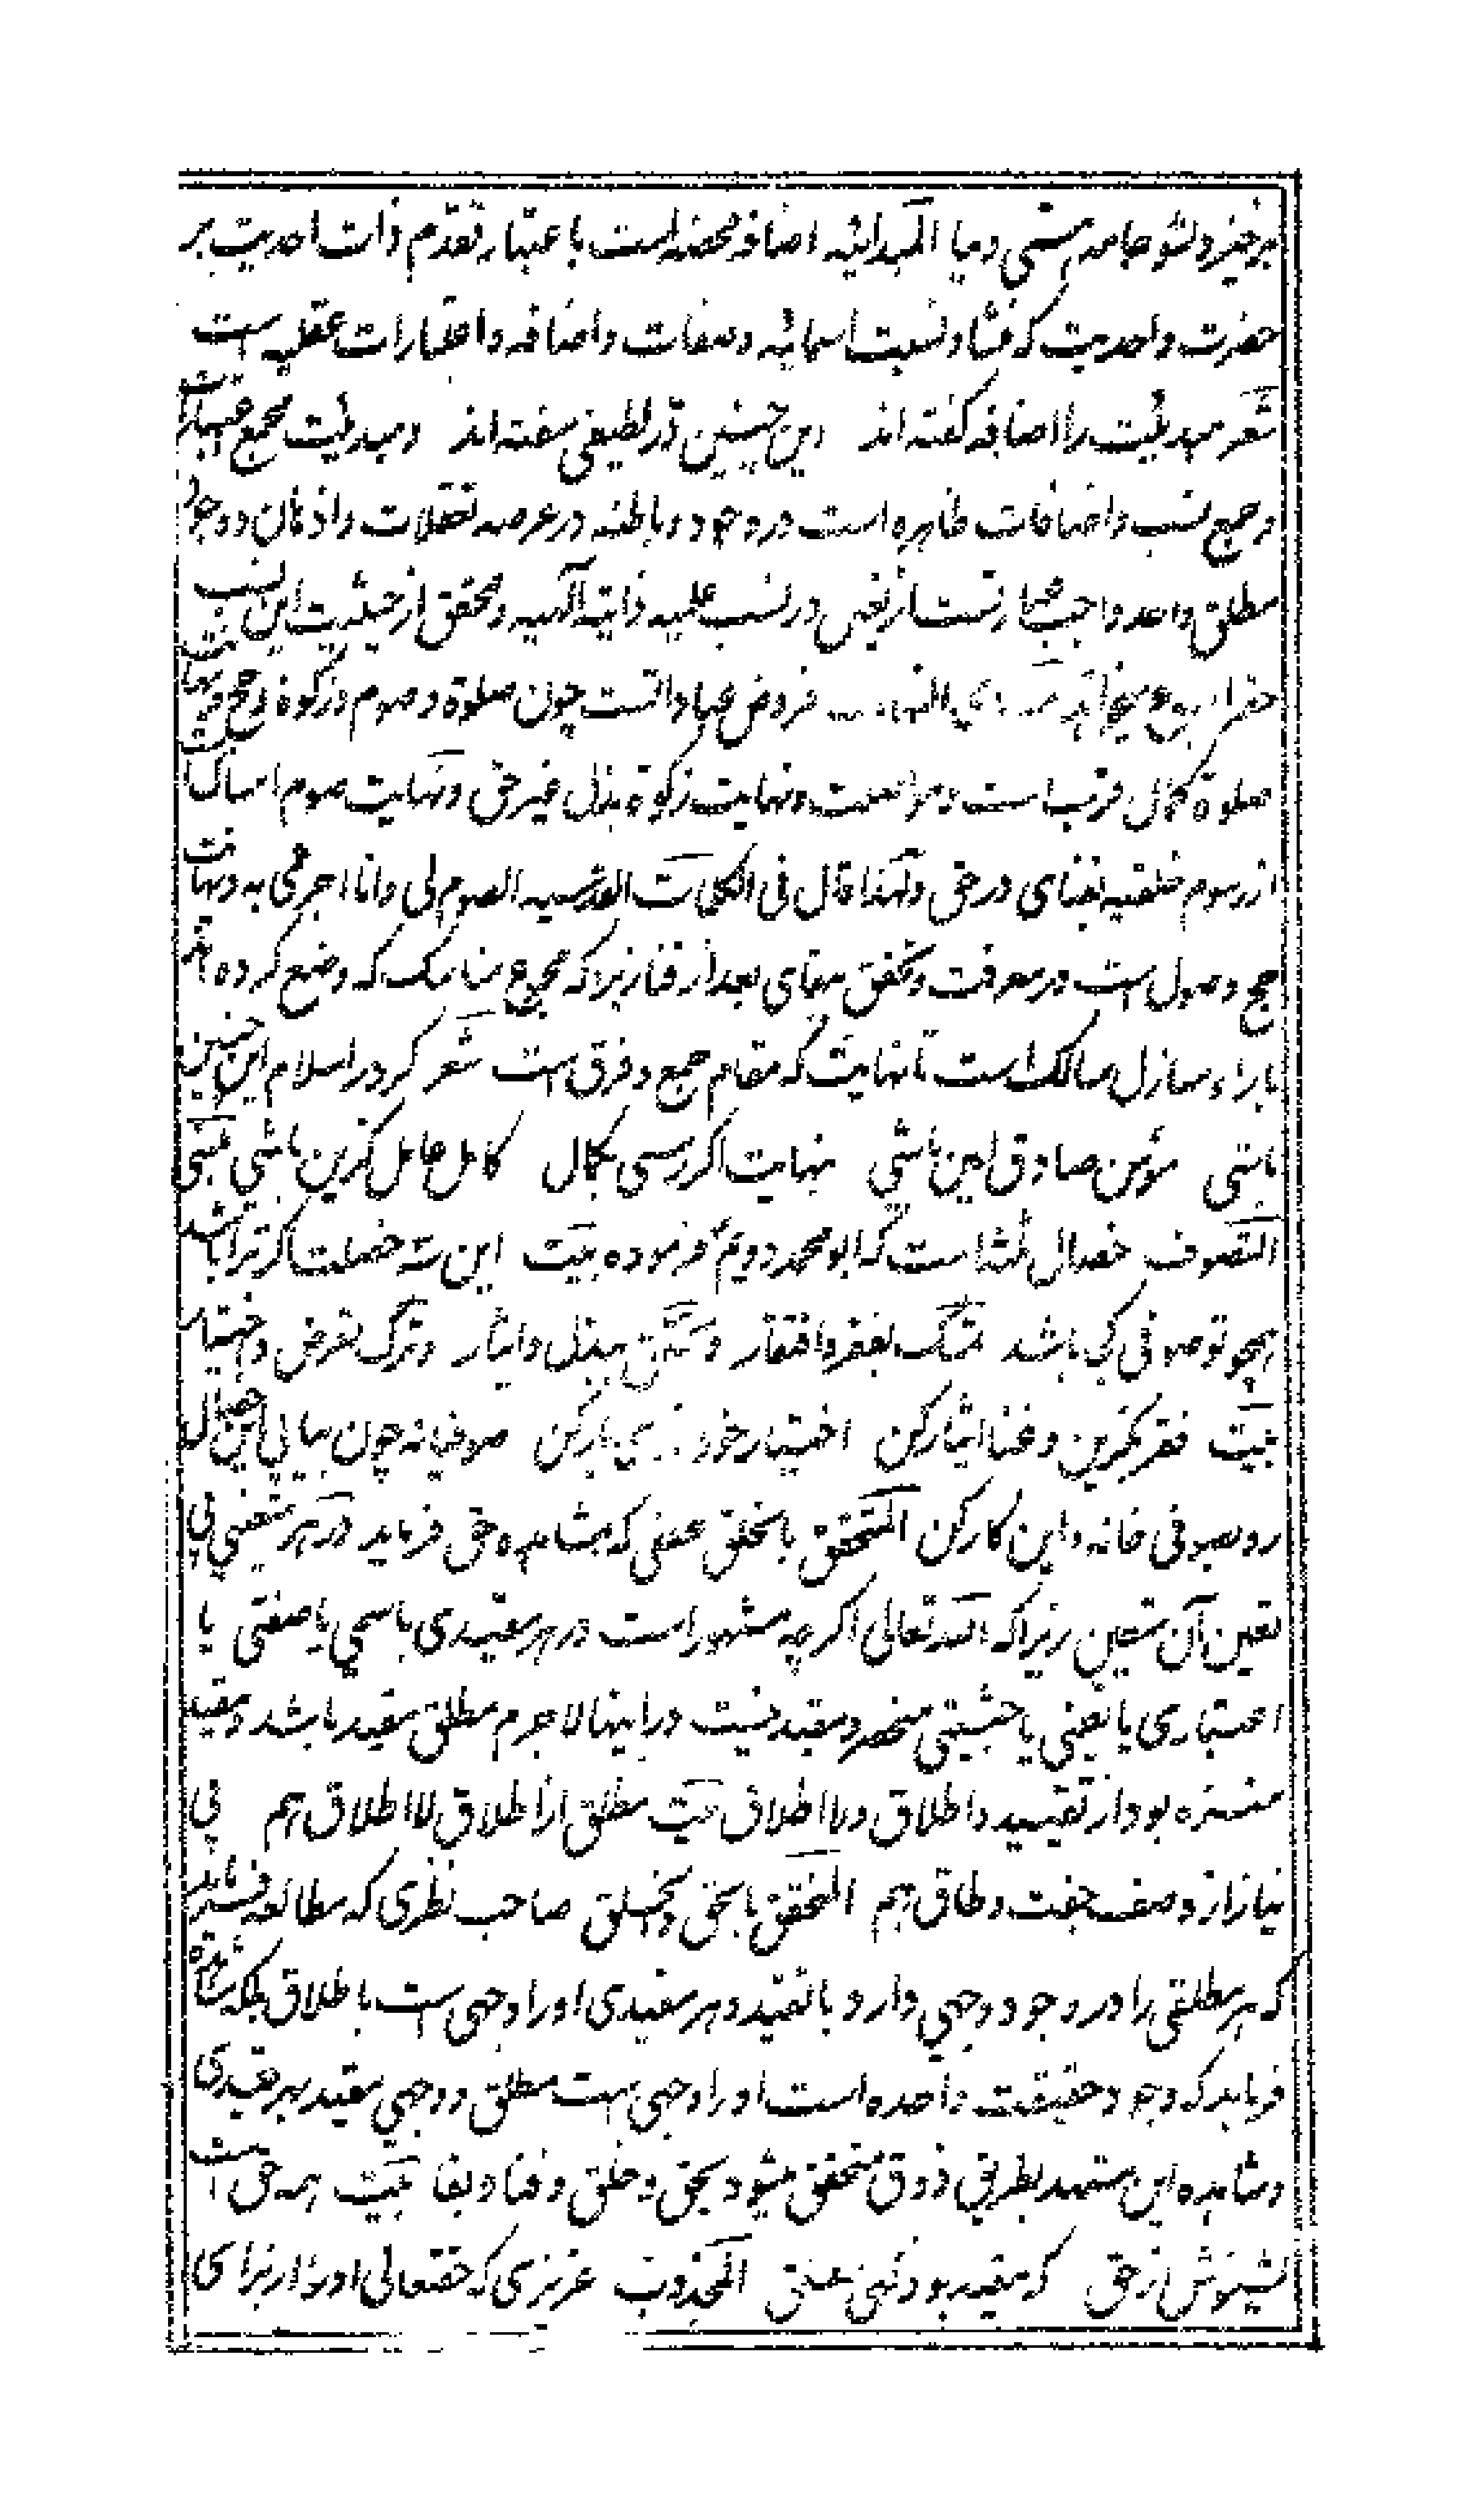 برخیز و بشو جامه هستی و بیا المبدائیه اضافه محضه است باعتبار تقدم ذات احدیت بر
حضرت واحدیت که منشاء نسبت اسمائیه و صفات و اضافه و اعتبارات عقلیه است
شعر مبدئیت را اضافه گفته اند این چنین در لطیفی سفته اند و مبدئیت مجمع اعتبارات
و جمیع نسب و اضافات ظاهره است در وجود و باطنه در عرصه تعقلات و اذهان و وجود
مطلق واحد واجب عبارتست از تعین در نسب علمیه ذاتیه الهیه و محقق از حیثیت این نسب
فروض عباداتست چون صلوة و صوم و زکوة و حج و نهایت
صلوة کمال قرب است و مواصلت و نهایت زکوة بذل غیر حق و نهایت صوم امساک است
از رسوم خلقیه بفنای در حق ولهذا قال فی الکلمات القدسیه الصوم لی وانا اجزی به و نهایت
حج وصول است در معرفت و تحقق ببقای بعد از فنا زیرا که مجموع مناسک که وضع کرده اند
بازاء منازل سالک است تا نهایت که مقام جمع و فرق است شعر گر در اسلام این چنین
باشی مؤمن صادق امین باشی نهایت اگر رسی بکمال کامل عامل گزین باشی مبنی
التصوف خصال ثلثه است که ابو محمد رویم فرموده بیت این سه خصلت گر ترا باشد
همچو تو صوفی کی باشد تمسک بفقر و افتقار و تحقق ببذل و ایثار و ترک تعرض و اختیار
بیت فقر بگزین و غنا ایثار کن اختیار خود کن صوفیانه چون بیابی این خصال
رو بصوفی خانه و این کار کن المتحقق بالحق محققی که مشاهده حق فرماید در هر متعینی بی
تعین آن متعین زیرا که الله تعالی اگرچه مشهود است در هر مقیدی باسمی یا صفتی یا
اعتباری یا تعینی یا حیثیتی منحصر و مقید نیست در اینها لاجرم مطلق مقید باشد و مقید
منزه بود از تقیید و اطلاق و لا اطلاق بیت مطلق از اطلاق لا اطلاق هم بی
نیاز از وصف جفت و طاق هم المتحقق بالحق والخلق صاحب نظری که مطالعه فرماید
که هر مطلقی را در وجود وجهی دارد با تقید و هر مقیدی او را وجهی است باطلاق بلکه مشاهده
فرماید که وجود حقیقت واحده است او را وجهی هست مطلق و وجهی مقید بهر قیدی
و مشاهده این مشهد بطریق ذوق متحقق میشود بحق و خلق و فنا و بقا بیت همه حق است
از حق که مقید بود المجذوب عزیزی که حقتعالی او را از برای